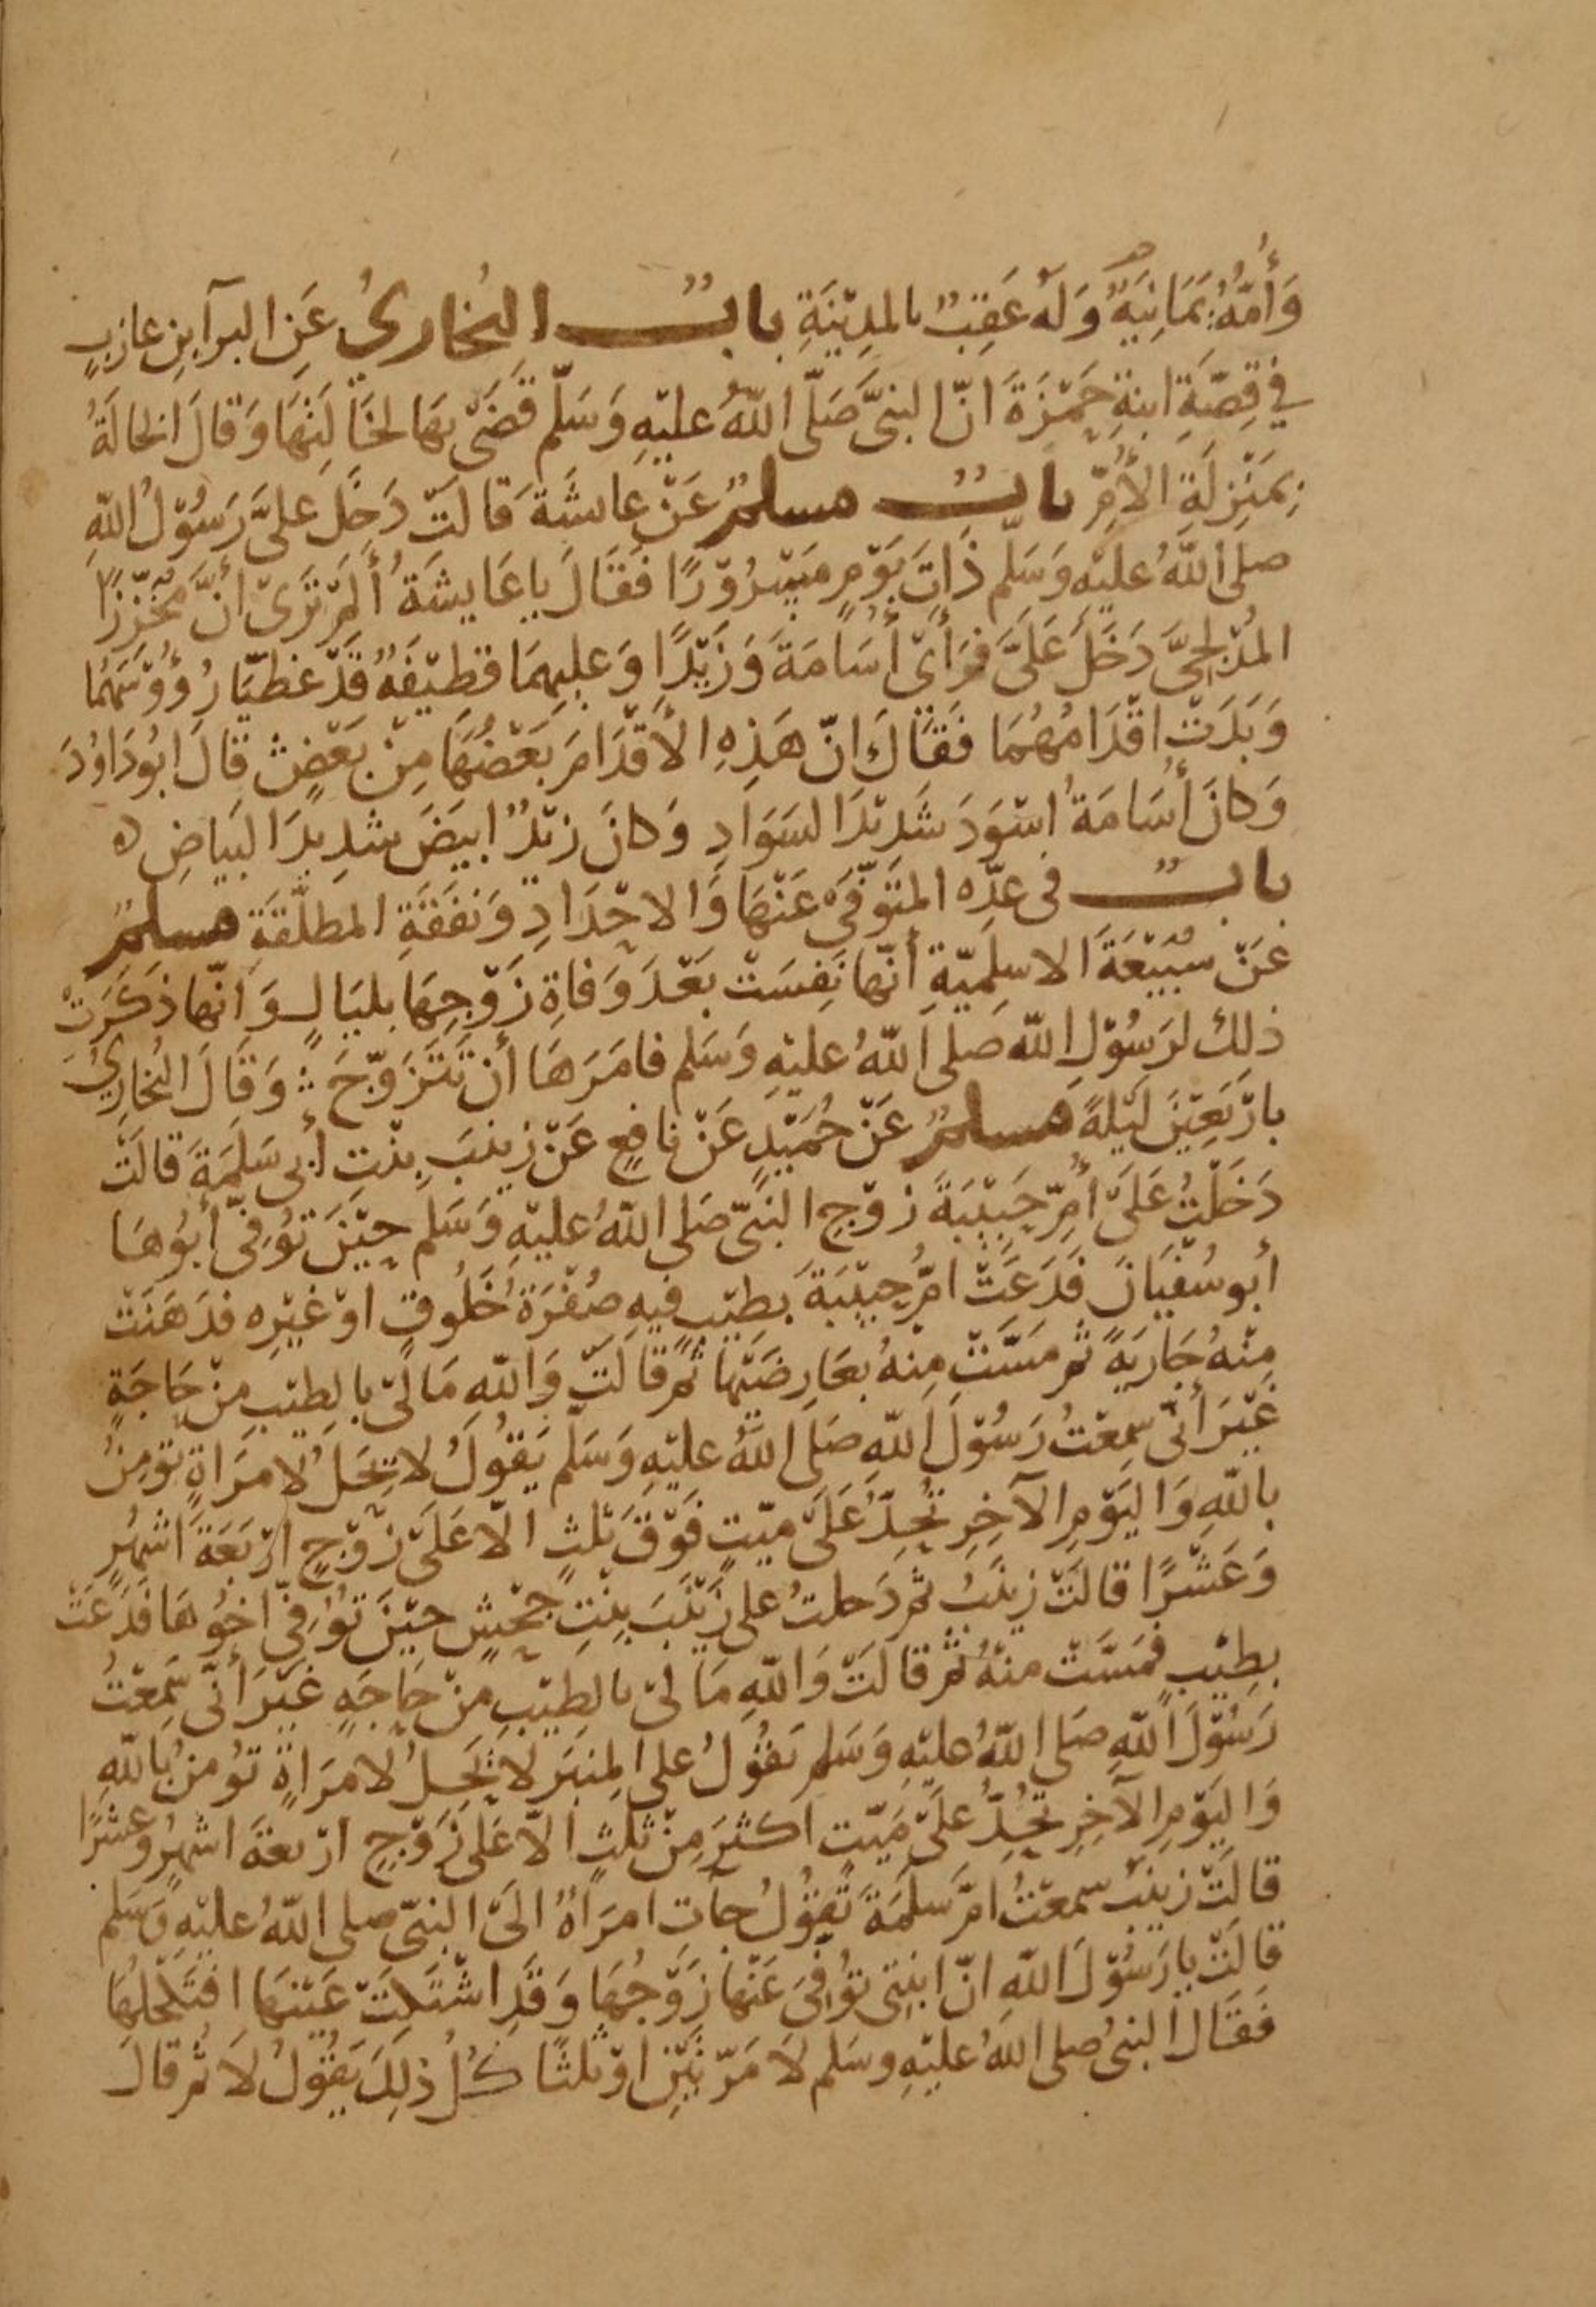 وَأُمّهُ يَمَانِيَةٌ وَلَهُ عَقِبٌ بالمدِيْنَةِ بابٌ البُخَاريُ عَنِ البرآ بنِ عازبٍ
في قِصّةِ ابنةِ حَمْزَةَ انّ النبىَّ صَلّى اللّهُ عليْهِ وَسَلّم قَضَى بهَا لخَالَتِهَا وَقالَ الخالَةُ
بمَنْزِلَةِ الأُمِّ بابٌ مسلمٌ عَنْ عايشَةَ قالَتْ دَخَلَ علىَّ رَسُوْلُ اللّهِ
صلى اللّهُ عليْهِ وَسَلم ذَاتَ يَوْمٍ مَسْرُوْرًا فَقَالَ يا عَايشَةُ أَلَمْ تَرَىْ أنَّ مُجَزِّزًا
المُدْلِجىَّ دَخَلَ عَلَىَّ فرَأَىْ أُسَامَةَ وَزَيْدًا وَعليهِمَا قطِيْفَةٌ قَدْ غطيَّا رُؤُوْسَهُمَا
وَبَدَتْ اقْدَامُهُمَا فَقَالَ انّ هَذِهِ الأَقْدَامَ بَعْضُهَا مِنْ بَعْضٍ قَالَ ابُو دَاوُدَ
وَكانَ أُسَامَةُ اسْوَدَ شَدِيْدَ السَوَادِ وَكانَ زيْدٌ ابيَضَ شدِيْدَ البَيَاضِ ه
بابٌ فى عدّه المتَوَفّىَ عَنْهَا وَالاحْدَادِ وَنفَقَةِ المطلَّقَةِ مسلمٌ
عَنْ سُبَيْعَةَ الاسلَميّةِ أنّها نَفِسَتْ بَعْدَ وَفاةِ زَوْجِهَا بليَالٍ وَانّها ذكَرَتْ
ذلِكَ لرَسُوْلِ اللّه صلى اللّهُ عليْهِ وَسَلم فامَرَهَا أن تَتَزَوّجَ وَقَالَ البُخارِيُ
بارْبَعِيْنَ لَيْلةً مسلمٌ عَنْ حُمَيْدٍ عَنْ نافعٍ عَنْ زينَبَ بِنْت أبى سَلَمَةَ قالَتْ
دَخَلْتُ عَلَىْ أُمِّ حَبِيْبَةَ زوْجِ النبىّ صَلى اللّهُ عليْهِ وَسَلم حِيْنَ تُوُفّىَ أبُوْهَا
أبو سُفيَانَ فَدَعَتْ امُّ حبِيْبَةَ بطيْبٍ فيهِ صُفْرَةُ خَلُوقٍ اوْ غيْرِه فدَهَنَتْ
مِنْهُ جَارِيَةً ثم مَسّتْ مِنْهُ بعَارِضَيْها ثمّ قالَتْ وَاللّهِ مَا لىْ بالطِيْبِ مِنْ حَاجَةٍ
غَيْرَ أنّى سَمِعْتُ رَسُوْلَ اللّهِ صَلى اللّهُ عليْهِ وَسَلّم يَقُوْلُ لا يَحِلُ لامرَاةٍ تُؤمِنُ
باللّهِ وَاليَوْمِ الآخِرِ تُحِدُّ عَلَىْ ميّتٍ فَوْقَ ثلثٍ الّا عَلَىْ زَوْجٍ ارْبَعَةَ اشْهُرٍ
وَعَشْرًا قالَتْ زينَبُ ثم دَخلتُ على زَيْنَبَ بِنْتِ جَحْشٍ حيْنَ تُوُفّىَ اخُوْهَا فَدَعَتْ
بطِيْبٍ فمَسّتْ منْهُ ثم قالَتْ وَاللّهِ مَا لىْ بالطِيْبِ مِنْ حَاجَةٍ غَيْرَ أنّى سَمِعْتُ
رَسُوْلَ اللّهِ صَلى اللّهُ عليْهِ وَسَلم يَقُوْلُ على المنبَرِ لا يَحِلُ لامرَاةٍ تُؤمِنُ باللّهِ
وَاليَوْمِ الآخِرِ تُحِدُّ علىْ مَيّتٍ اكثَرَ مِنْ ثلثٍ الّا عَلى زَوْجٍ ارْبعةَ اشهُرٍ وعشرًا
قالَتْ زينَبُ سمعْتُ امَّ سَلَمَةَ تَقُوْلُ جآت امرَاةٌ الىَ النبىّ صلى اللّهُ عليْهِ وَسَلم
قالَتْ يا رَسُوْلَ اللّهِ انّ ابنتِى تُوُفىَ عَنْها زَوْجُهَا وَقَدِ اشْتَكَتْ عَيْنهَا افنَكْحُلُهَا
فَقَالَ النبىُ صلى اللّهُ عليْهِ وسَلم لا مَرّتيْنِ اوْ ثلثًا كُلُ ذلِكَ يَقُوْلُ لا ثم قالَ